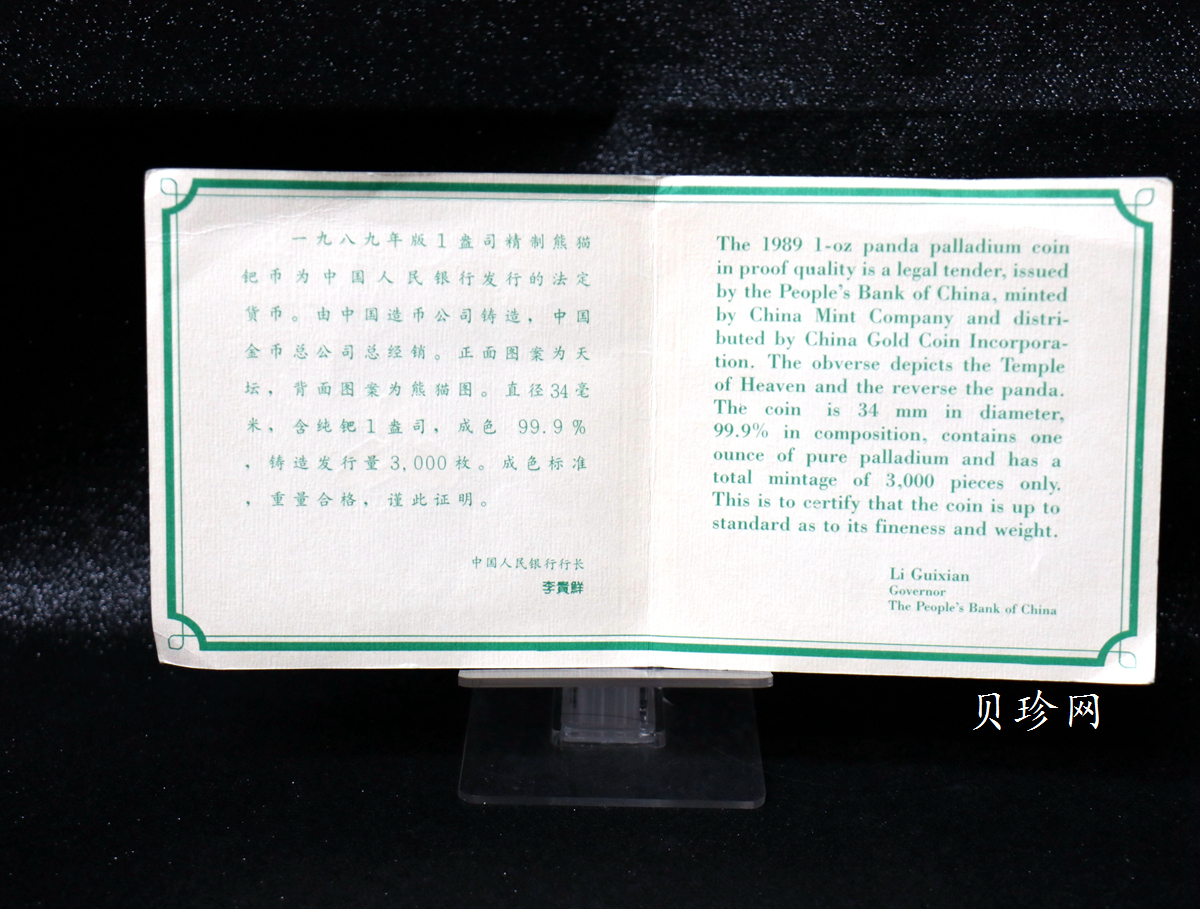 一九八九年版1盎司精制熊猫
钯币为中国人民银行发行的法定
货币。由中国造币公司铸造，中国
金币总公司总经销。正面图案为天
坛，背面图案为熊猫图。直径34毫
米，含纯钯1盎司，成色 99.9%
，铸造发行量3,000枚。成色标准
，重量合格，谨此证明。
中国人民银行行长
李貴鮮
The 1989 1-oz panda palladium coin
in proof quality is a legal tender, issued
by the People's Bank of China, minted
by China Mint Company and distri-
buted by China Gold Coin Incorpora-
tion. The obverse depicts the Temple
of Heaven and the reverse the panda.
The coin is 34 mm in diameter,
99.9% in composition, contains one
ounce of pure palladium and has a
total mintage of 3,000 pieces only.
This is to certify that the coin is up to
standard as to its fineness and weight.
Li Guixian
Governor
The People's Bank of China
贝珍网